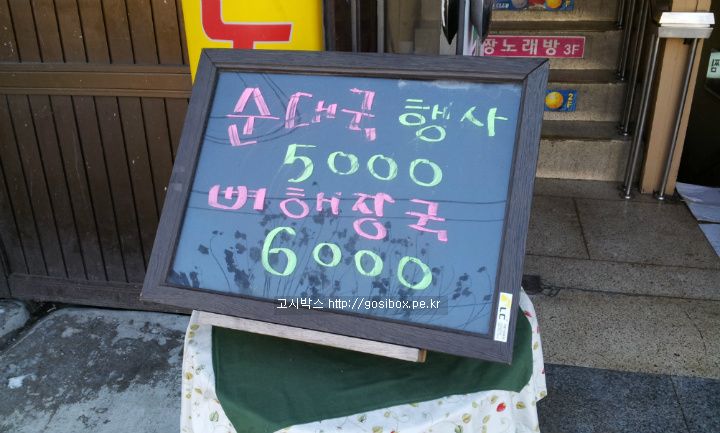 CLUB
짱노래방 3F
2F
순대국 행사
5000
뼈해장국
6000
고시박스 http://gosibox.pe.kr